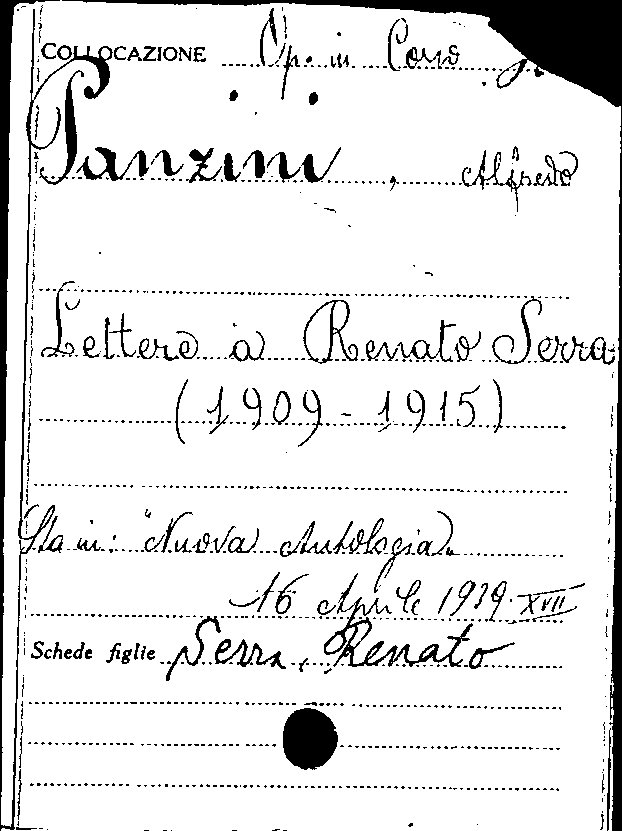 COLLOCAZIONE Op. in
Panzini, Alfredo
Lettere a Renato Serra
(1909-1915)
Sta in: "Nuova Antologia"
16 Aprile 1939-XVII
Schede figlie Serra, Renato